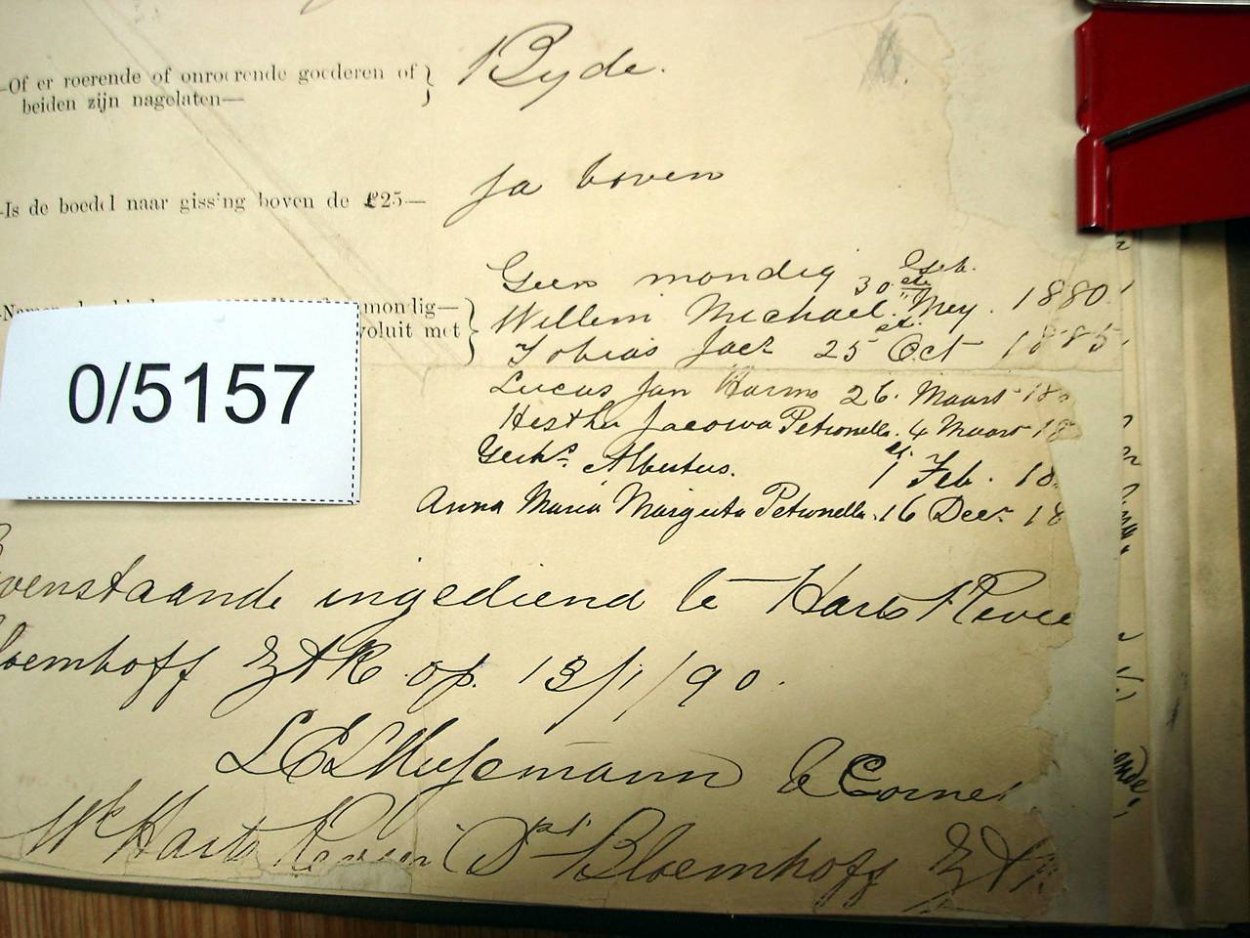 —Of er roerende of onroerende goederen of
beiden zijn nagelaten—
Byde.
—Is de boedel naar gissing boven de £25—
Ja boven
Geen mondig Geb.
mondig—
Willem Michael. 30 Mey. 1880.
voluit met
Tobias Jacs 25 Oct 1885.
Lucas Jan Harms 26. Maart 18
Hestha Jacowa Petronella. 4 Maart 18
Gerhs. Albertus. 1 Feb. 18
Anna Maria Margreta Petronella. 16 Decr 18
venstaande ingediend te Harts Rivier
loemhoff ZAR op. 13/1/90.
Corner
Wk Harts Rivier Dst Bloemhoff ZAR
0/5157